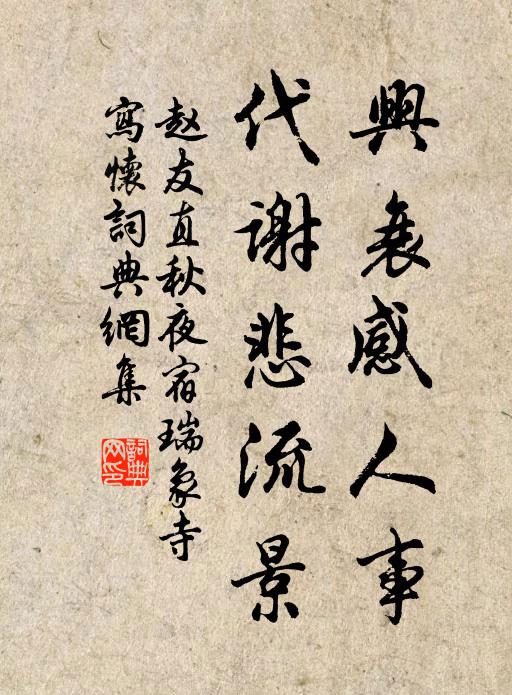 興衰感人事
代謝悲流景
赵友直秋夜宿瑞象寺
寫懷詞典網集
詞典
网印